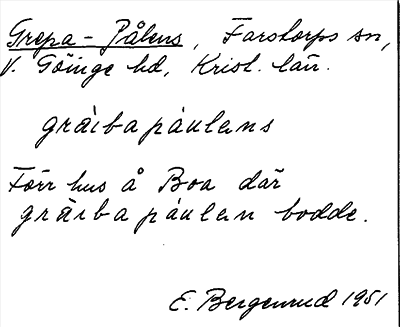 Grepa-Pålens, Farstorps sn,
V. Göinge hd, Krist. län.
gräiba páulans
Förr hus å Boa där
gräiba páulan bodde.
E. Bergenrud 1951